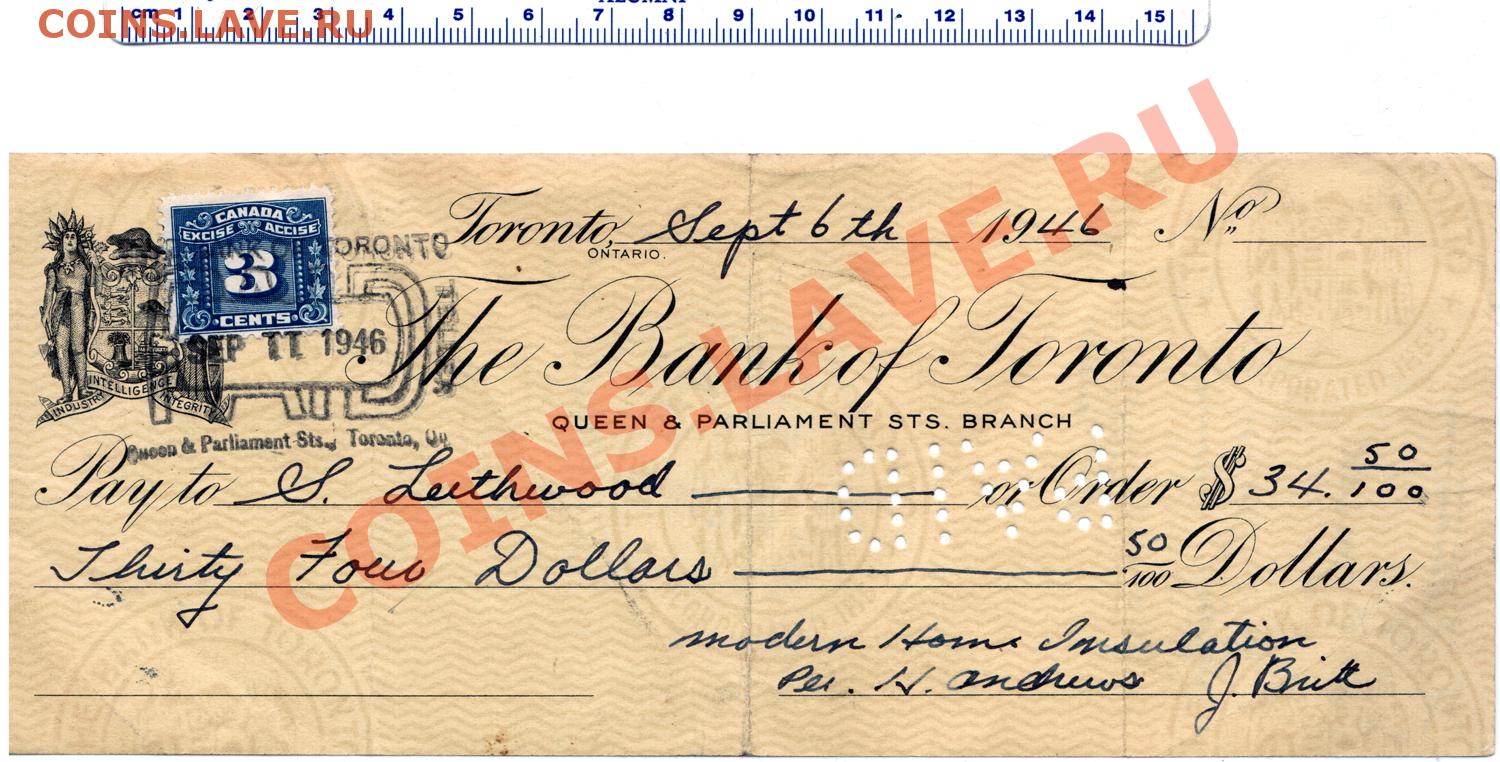 ALUMNI
cm 1 2 3 4 5 6 7 8 9 10 11 12 13 14 15
COINS.LAVE.RU
CANADA
EXCISE ACCISE
3
CENTS
TORONTO
SEP 11 1946
PAID
Queen & Parliament Sts., Toronto,
INDUSTRY INTELLIGENCE INTEGRITY
Toronto, Sept 6th 1946 No
ONTARIO.
The Bank of Toronto
QUEEN & PARLIAMENT STS. BRANCH
Pay to S. Leethwood or Order $34.50/100
PAID
Thirty Four Dollars 50/100 Dollars.
modern Home Insulation
Per. H. Andrews J. Britt
COINS.LAVE.RU